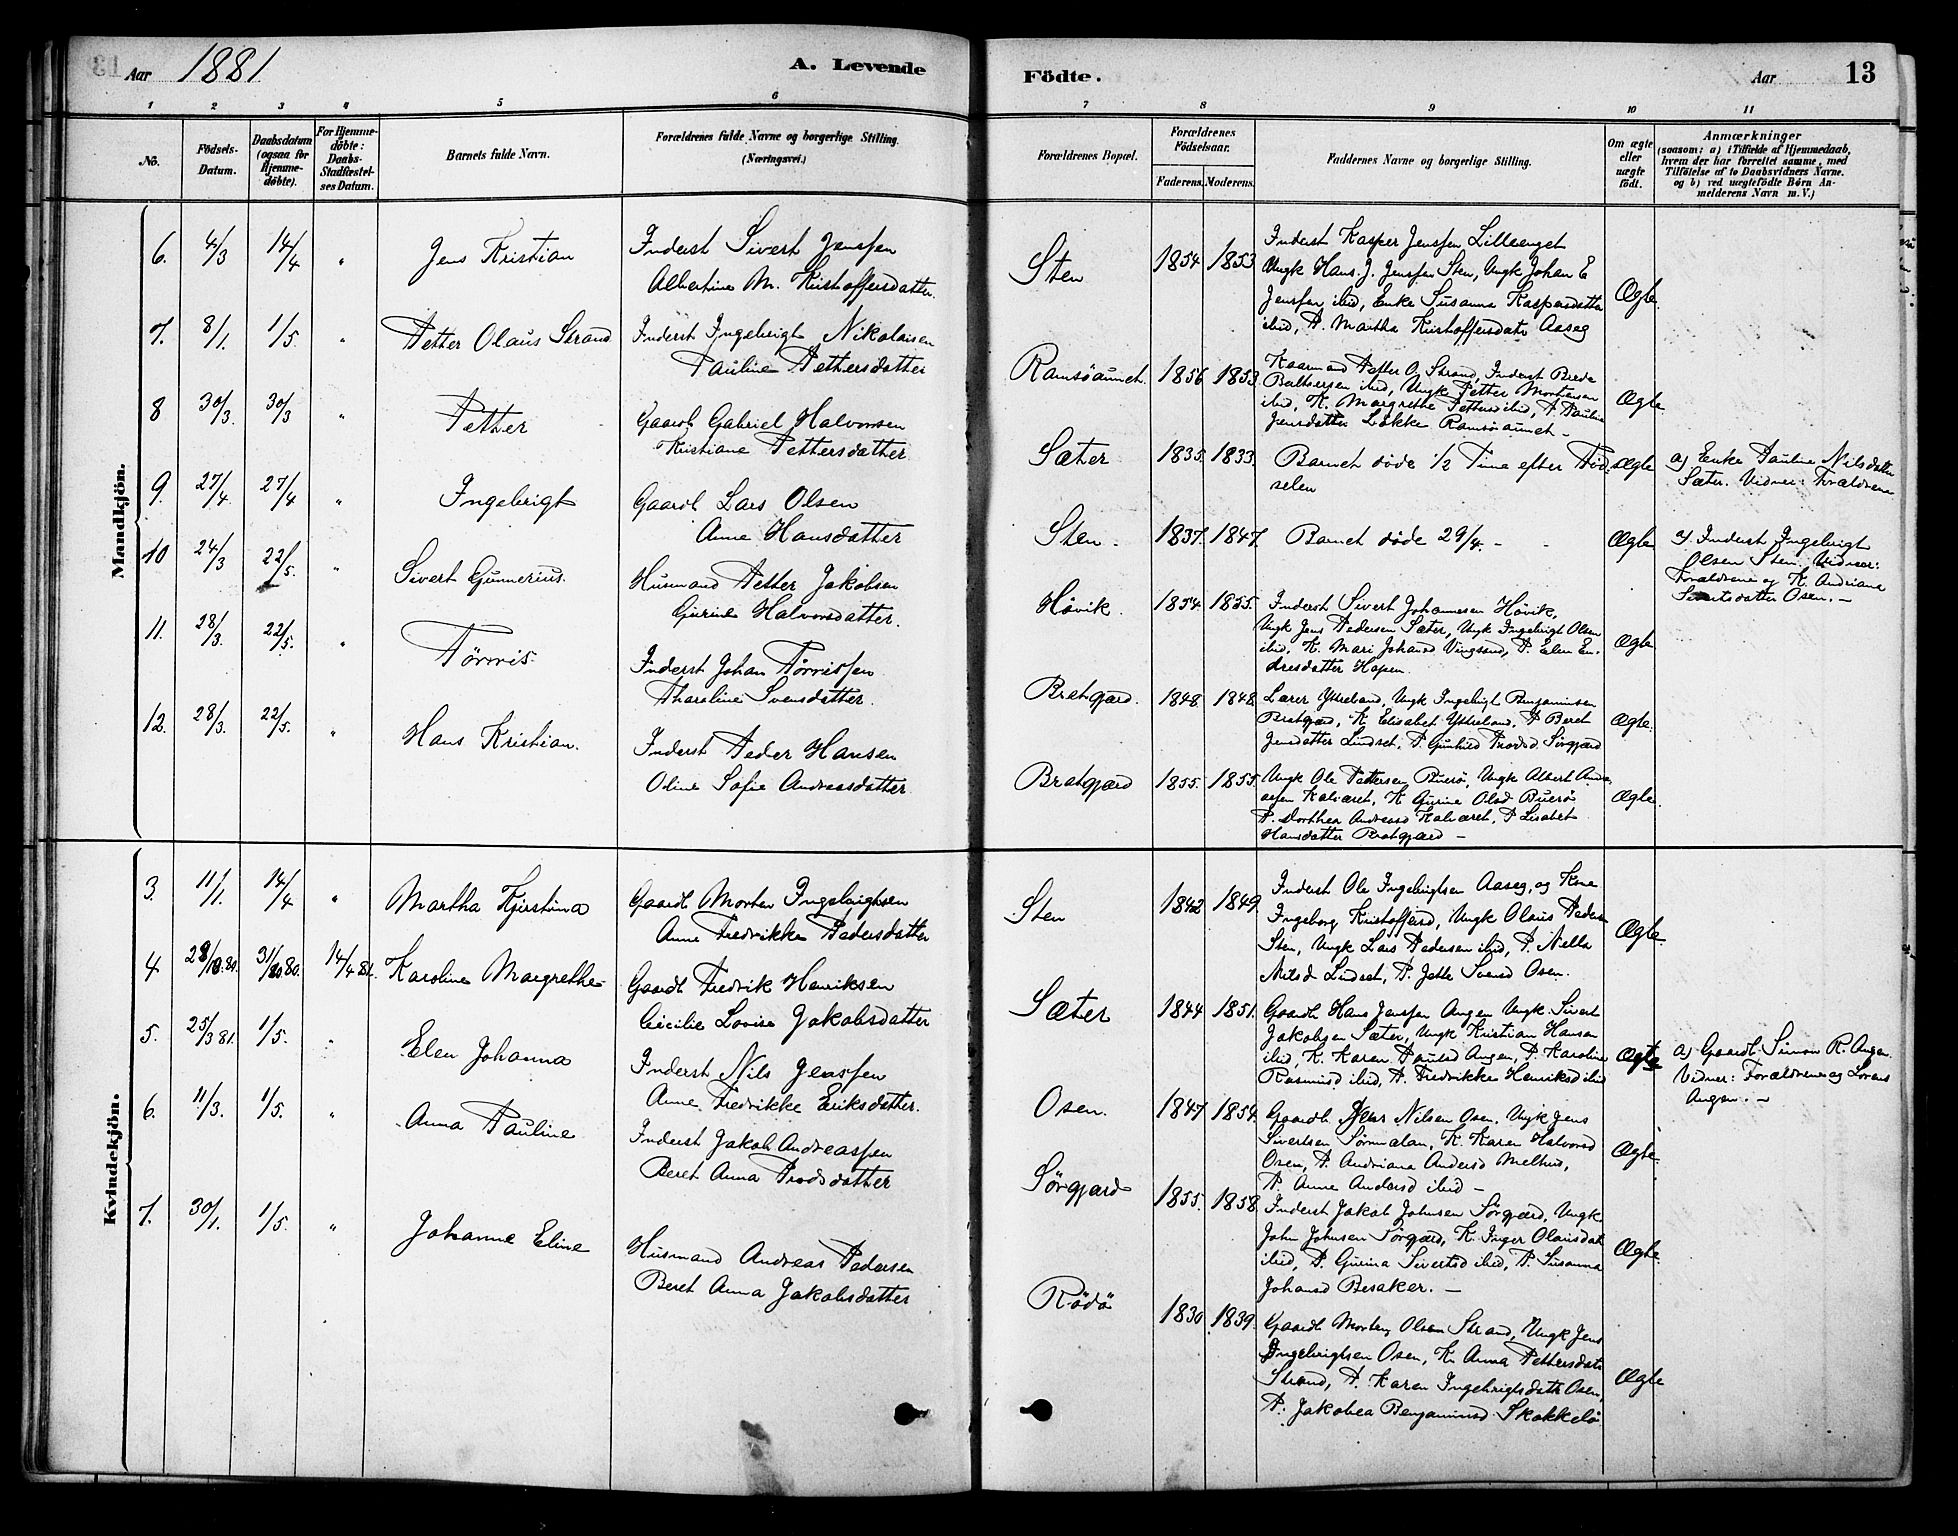 Aar 1881
A. Levende
Födte.
Aar
13
1 2 3 4 5 6 7 8 9 10 11
No.
Födsels-
Datum.
Daabsdatum
(ogsaa for
Hjemme-
döbte).
For Hjemme-
döbte:
Daabs-
Stadfæstel-
ses Datum.
Barnets fulde Navn.
Forældrenes fulde Navne og borgerlige Stilling.
(Næringsvei.)
Forældrenes Bopæl.
Forældrenes
Födselsaar.
Faderens. Moderens.
Faddernes Navne og borgerlige Stilling.
Om ægte
eller
uægte
födt.
Anmærkninger
(saasom: a) i Tilfælde af Hjemmedaab,
hvem der har forrettet samme, med
Tilföielse af to Daabsvidners Navne.
og b) ved uægtefödte Börn An-
melderens Navn m. V.)
Mandkjön.
6. 4/3 14/4 " Jens Kristian
Inderst Sivert Jenssen
Albertine M. Kristoffersdatter.
Sten 1854 1853
Inderst Kasper Jenssen Lilleenget
Ungk Hans J. Jenssen Sten, Ungk Johan E
Jenssen ibid, Enke Susanna Kaspersdatter
ibid, P. Martha Kristoffersdatr Aaseg
Ægte
7. 8/1 1/5. " Petter Olaus Strand
Inderst Ingebrigt Nikolaisen
Pauline Pettersdatter
Ramsöaunet. 1856 1853
Kaarmand Petter O. Strand, Inderst Brede
Baltsersen ibid, Ungk Petter Mortensen
ibid, K. Margrethe Pettersd ibid, P. Pauline
Jensdatter Lökke Ramsöaunet –
Ægte.
8 30/3. 30/3 " Petter
Gaardb Gabriel Halvorsen
Kristiane Pettersdatter
Sæter 1835. 1833.
Barnet döde 1/2 Time efter Föd
selen
Ægte
a) Enke Pauline Nilsdatter
Sæter. Vidner: Forældrene
9. 27/4. 27/4 " Ingebrigt
Gaardb Lars Olsen
Anne Hansdatter
Sten. 1837. 1847.
Barnet döde 29/4. –
Ægte
a). Inderst Ingebrigt
Olsen Sten. Vidner:
Forældrene og K. Andriane
Sivertsdatter Osen. –
10 24/3 22/5. " Sivert Gunnerius.
Husmand Petter Jakobsen
Gurine Halvorsdatter.
Hövik. 1854. 1855.
Inderst Sivert Johannesen Hövik,
Ungk Jens Pedersen Sæter, Ungk Ingebrigt Olsen
ibid, K. Mari Johansd Vingsand, P. Elen En-
dresdatter Hopen.
Ægte
11. 28/3. 22/5. " Törris.
Inderst Johan Törrissen
Tharaline Svensdatter.
Bratgjærd. 1848 1848
Lærer Ytreland, Ungk Ingebrigt Benjaminsen
Bratgjærd, K. Elisabet Ytreland, P. Beret
Jensdatter Lindset, P. Gunhild Trodsd. Sörgjærd
Ægte.
12. 28/3. 22/5. " Hans Kristian.
Inderst Peder Hansen
Oline Sofie Andreasdatter.
Bratgjærd 1855. 1855.
Ungk Ole Pettersen Buerö, Ungk Albert Andre
assen Kalværet, K. Gurine Olsd Buerö
P. Dorthea Andreasd Kalværet, P. Lisabet
Hansdatter Bratgjærd –
Ægte.
Kvindekjön.
3. 11/1. 14/4 " Martha Kjerstina
Gaardb Morten Ingebrigtsen
Anne Fredrikke Pedersdatter
Sten 1842 1849.
Inderst Ole Ingebrigtsen Aaseg, og Kone
Ingeborg Kristoffersd, Ungk Olaus Pedersen
Sten, Ungk Lars Pedersen ibid, P. Nella
Nilsd Lindset, P. Jette Svensd Osen.
Ægte.
4 28/10.80. 31/10 80. 14/4 81. Karoline Margrethe
Gaardb Fredrik Henriksen
Cicilie Lovise Jakobsdatter
Sæter 1844 1851.
Gaardb Hans Jenssen Angen Ungk Sivert
Jakobsen Sæter, Ungk Kristian Hansen
ibid, K. Karen Paulsd Angen, P. Karoline
Rasmusd ibid, P. Fredrikke Henriksd ibid
Ægte
a) Gaardb. Simon R. Angen.
Vidner: Forældrene og Lorens
Angen. –
5. 25/3 81. 1/5. " Elen Johanna
Inderst Nils Jenssen
Anne Fredrikke Eriksdatter.
Osen. 1847 1854.
Gaardb. Jens Nilsen Osen, Ungk Jens
Sivertsen Sörmelan, K. Karen Halvorsd
Osen, P. Andriana Andersd Melhus,
P. Anne Andersd ibid –
Ægte.
6. 11/3. 1/5. " Anna Pauline
Inderst Jakob Andreassen
Beret Anna Trodsdatter
Sörgjærd 1855. 1858.
Inderst Jakob Johnsen Sörgjærd, Ungk.
John Johnsen Sörgjærd, K. Inger Olausdatr
ibid, P. Gurina Sivertsd ibid, P. Susanna
Johansd Besaker. –
Ægte.
7. 30/1. 1/5. " Johanne Eline
Husmand Andreas Pedersen
Beret Anna Jakobsdatter
Rödö 1830 1839.
Gaardb Morten Olsen Strand, Ungk Jens
Ingebrigtsen Osen, K. Anna Pettersdatr
Strand, P. Karen Ingebrigtsdatr Osen,
P. Jakobea Benjaminsd Skokkelö
Ægte